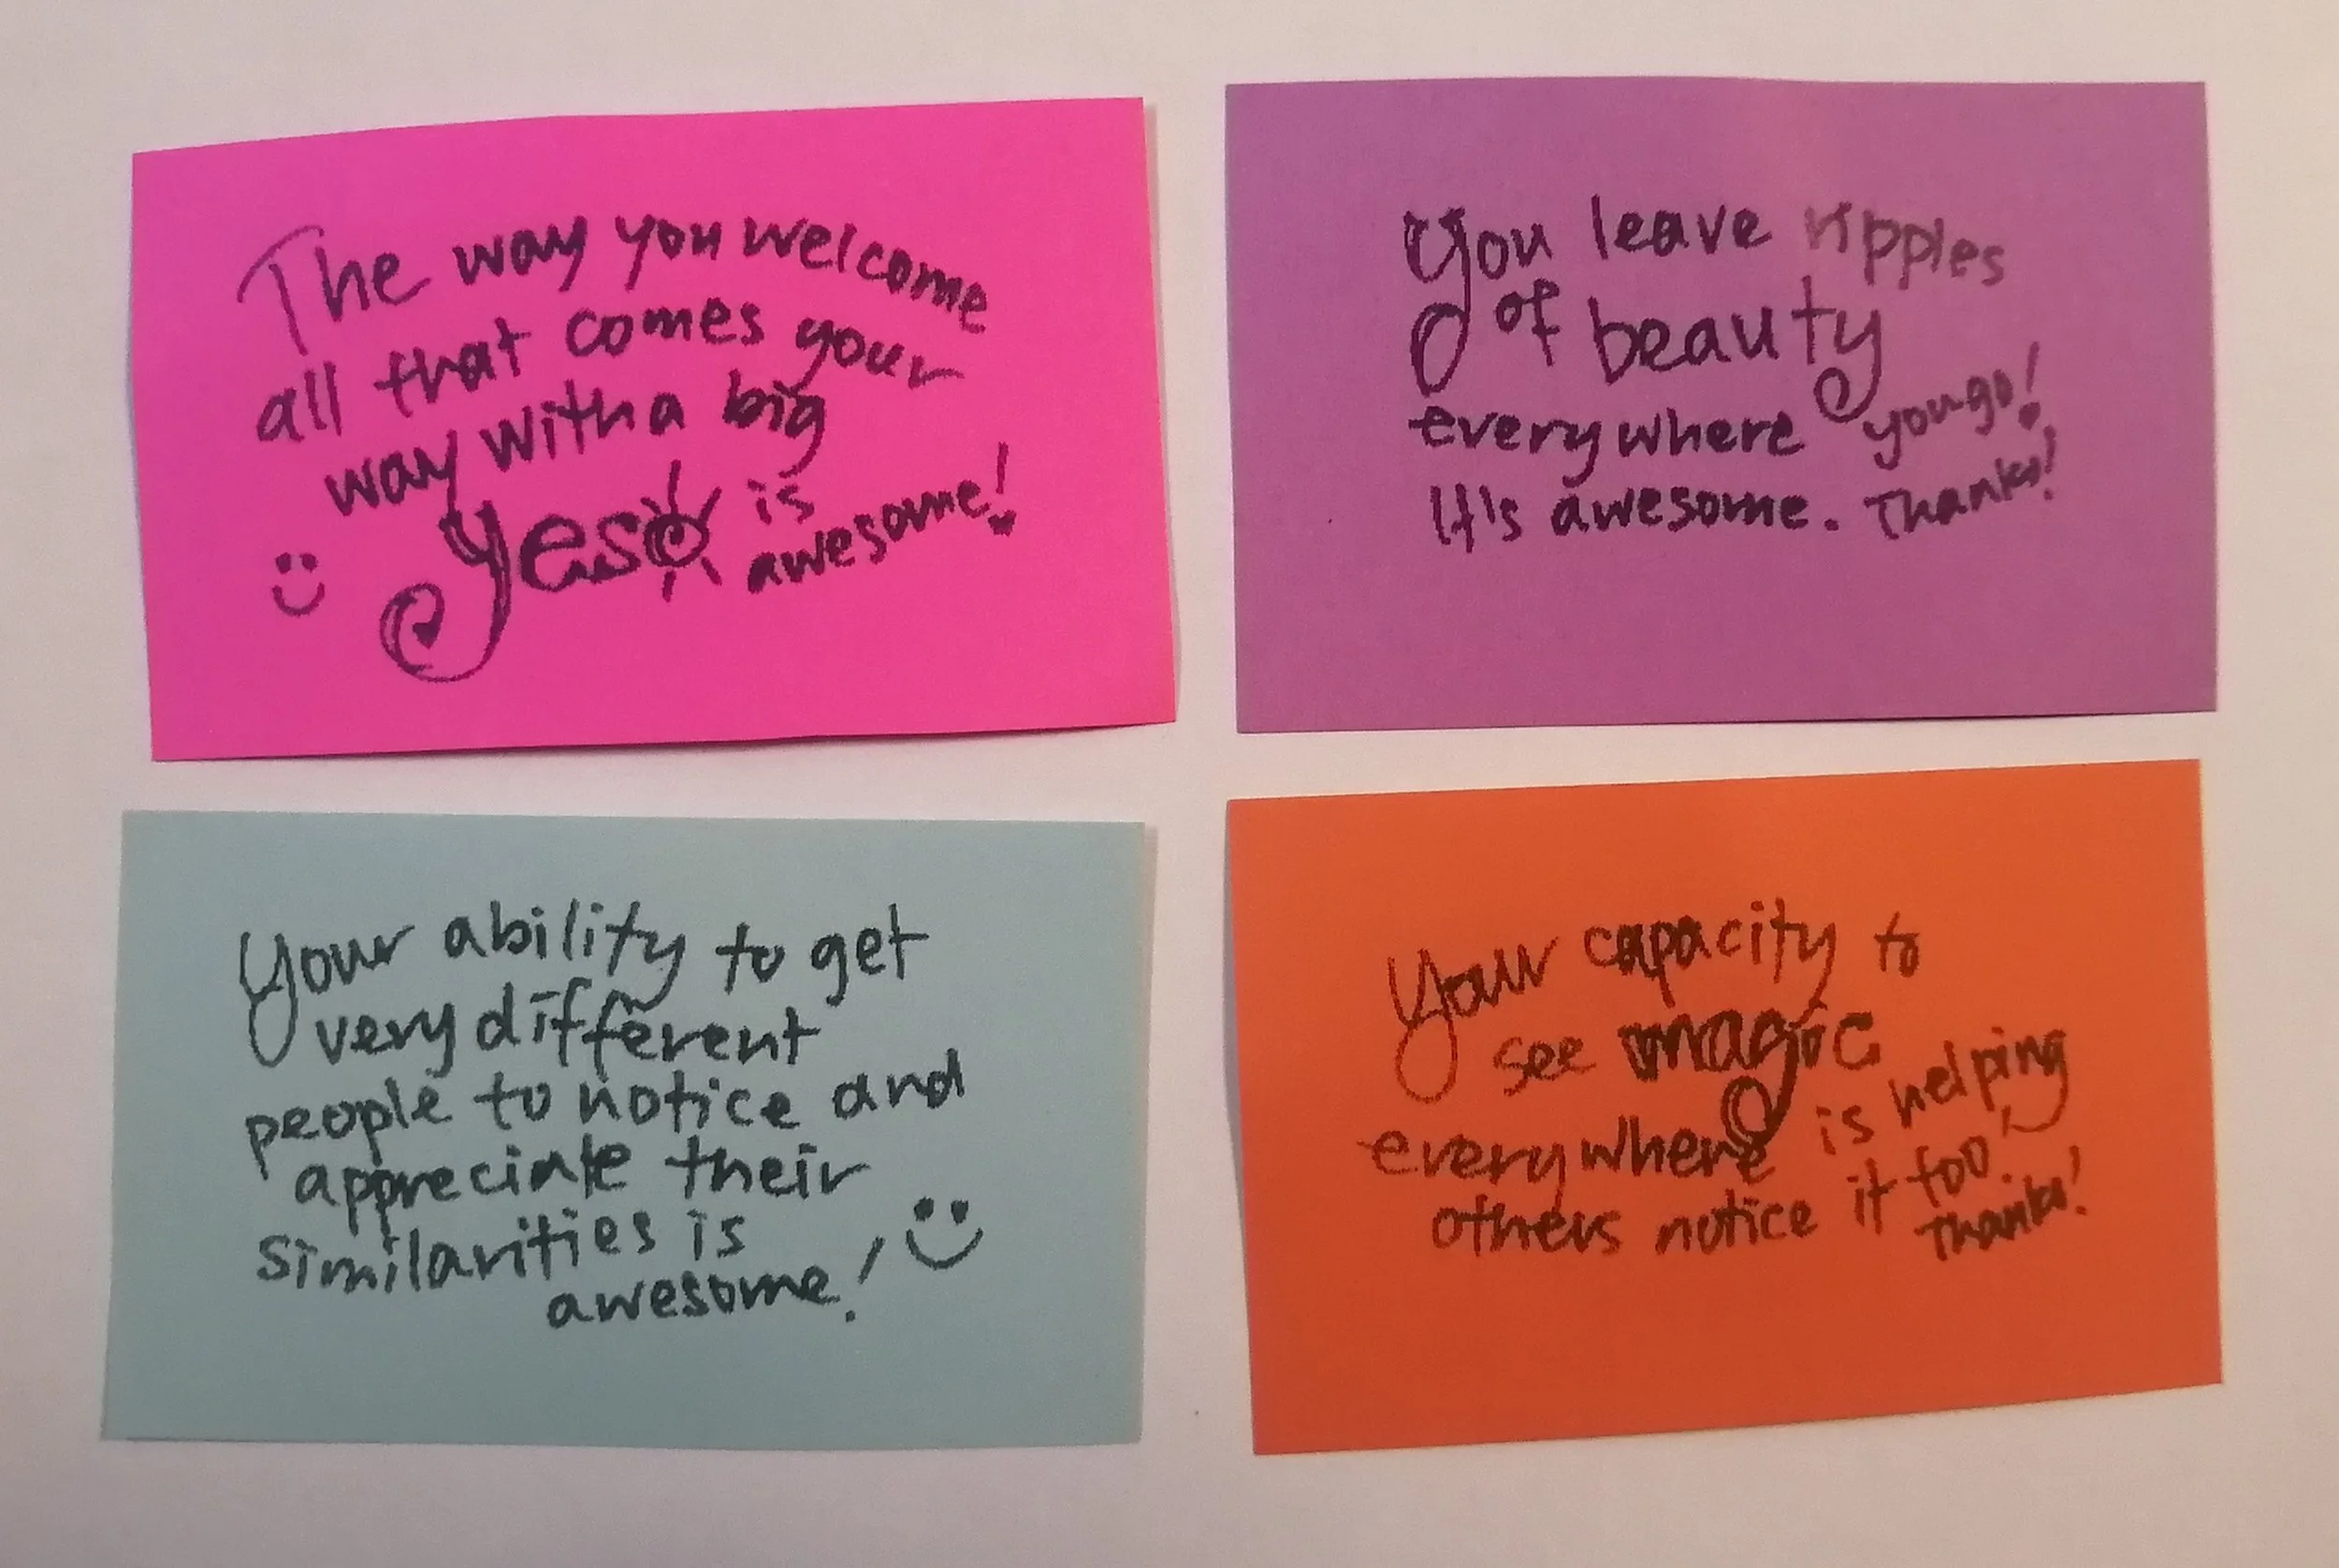 The way you welcome
all that comes your
way with a big
Yes is
awesome!
You leave ripples
of beauty
everywhere you go!
It's awesome. Thanks!
Your ability to get
very different
people to notice and
appreciate their
similarities is
awesome!
Your capacity to
see magic
everywhere is helping
others notice it too!
Thanks!